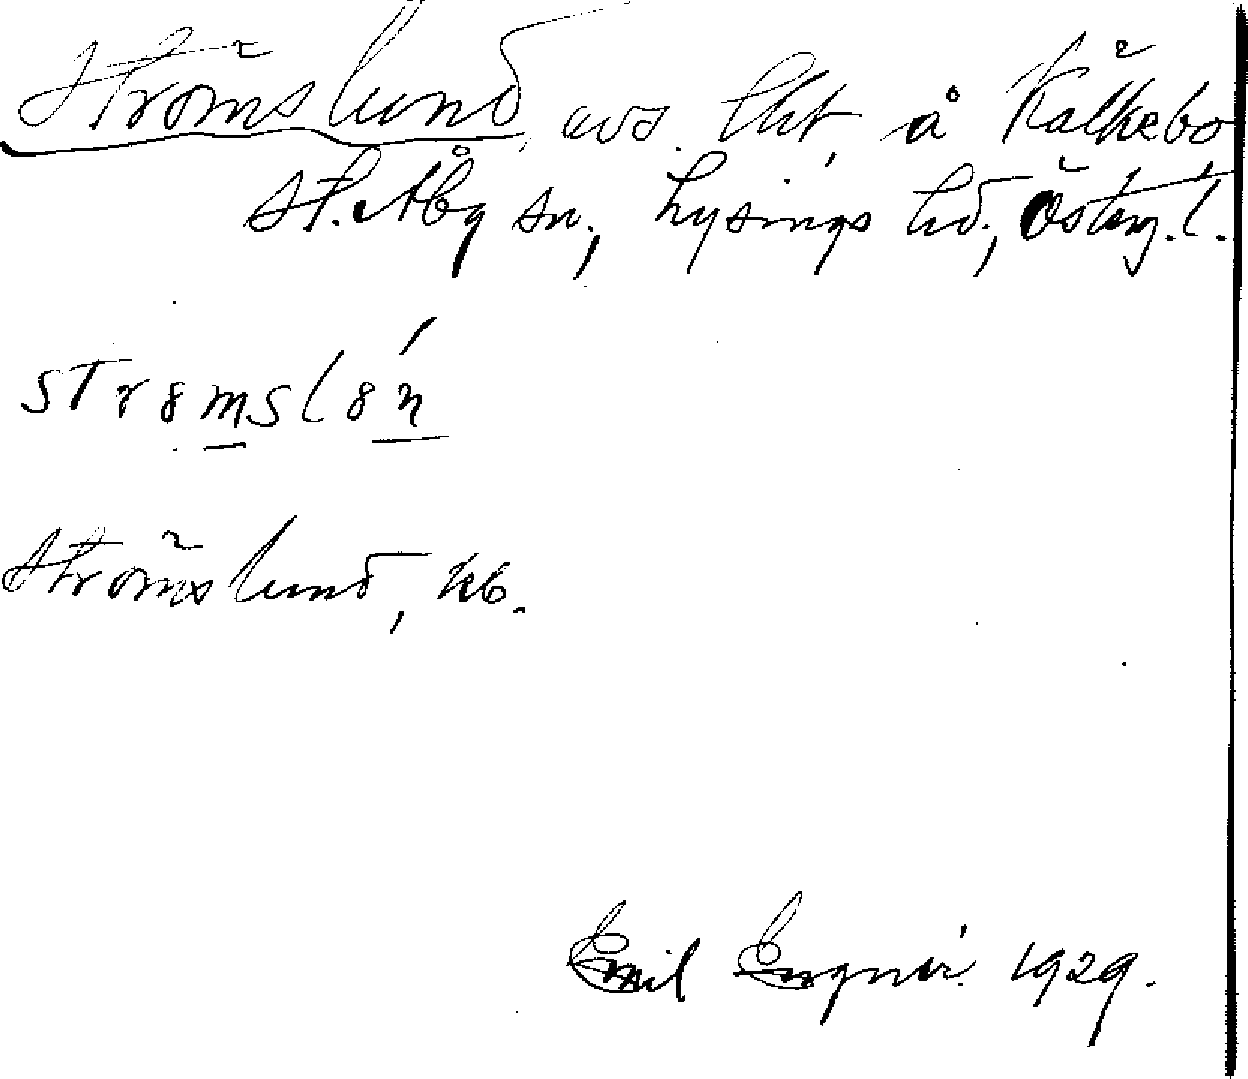 Strömslund, avs. lht, å Kälkebo
St. Åby sn., Lysings hd., Österg. l.
strømsløń
Strömslund, kb.
Emil Engnér 1929.